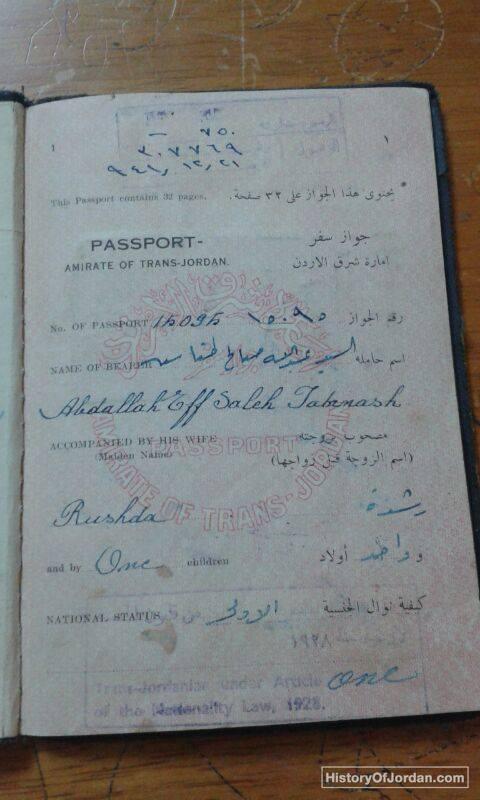 ٧٥٠
٣٠٧٧٦٩
٩٤١/١٢/٢١
1 ١
This Passport contains 32 pages. يحتوى هذا الجواز على ٣٢ صفحة.
PASSPORT- جواز سفر
AMIRATE OF TRANS-JORDAN. امارة شرق الاردن
No. OF PASSPORT 15095 ١٥٠٩٥ رقم الجواز
NAME OF BEARER السيد عبدالله صالح اسم حامله
Abdallah Eff Saleh Tabanash
ACCOMPANIED BY HIS WIFE مصحوب بزوجته
(Maiden Name) (اسم الزوجة قبل زواجها)
PASSPORT
AMIRATE OF TRANS-JORDAN
Rushda رشدة
and by One children و واحد أولاد
NATIONAL STATUS الاولى كيفية نوال الجنسية
١٩٢٨
Trans-Jordanian under Article one
of the Nationality Law, 1928.
HistoryOfJordan.com